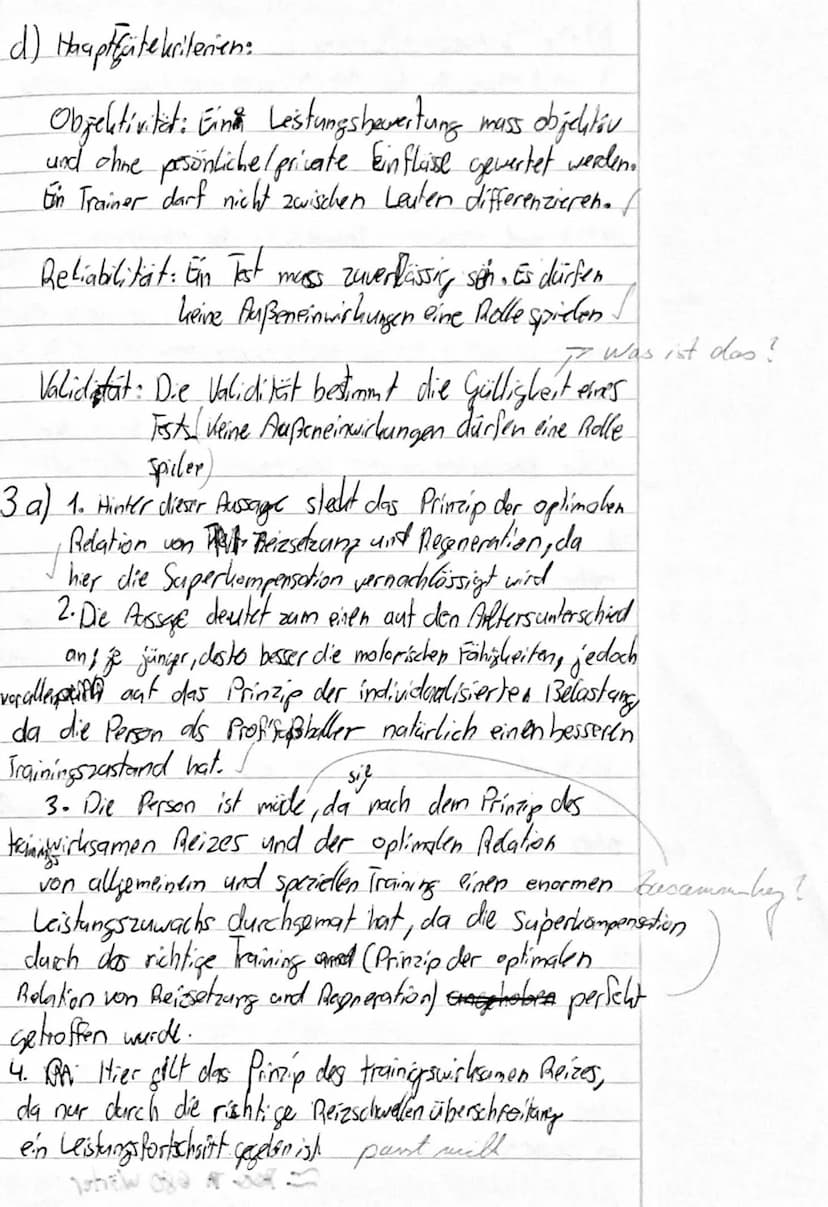 d) Hauptgütekriterien:
Objektivität: Eine Leistungsbewertung muss objektiv
und ohne persönliche/private Einflüsse gewertet werden.
Ein Trainer darf nicht zwischen Leuten differenzieren.
Reliabilität: Ein Test muss zuverlässig sein. Es dürfen
keine Außeneinwirkungen eine Rolle spielen
Was ist das?
Validität: Die Validität bestimmt die Gültigkeit eines
Tests (keine Außeneinwirkungen dürfen eine Rolle
spielen)
3 a) 1. Hinter dieser Aussage steckt das Prinzip der optimalen
Relation von Reizsetzung und Regeneration, da
hier die Superkompensation vernachlässigt wird
2. Die Aussage deutet zum einen auf den Altersunterschied
an, je jünger, desto besser die motorischen Fähigkeiten, jedoch
vor allem auf das Prinzip der individualisierten Belastung,
da die Person als Profifußballer natürlich einen besseren
Trainingszustand hat.
3. Die Person ist müde, da sie nach dem Prinzip des
trainingswirksamen Reizes und der optimalen Relation
von allgemeinem und speziellen Training einen enormen
Zusammenhang?
Leistungszuwachs durchgemat hat, da die Superkompensation
durch das richtige Training (Prinzip der optimalen
Relation von Reizsetzung und Regneration) perfekt
getroffen wurde.
4. Hier gilt das Prinzip des trainigswirksamen Reizes,
da nur durch die richtige Reizschwellenüberschreitung
ein Leistungsfortschritt gegeben ist. passt nicht